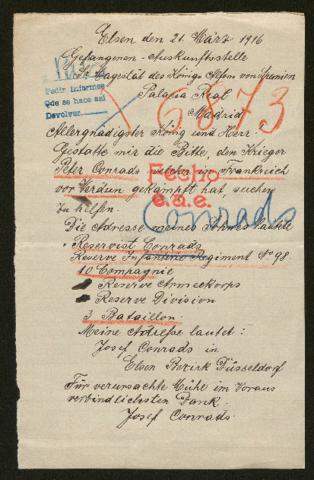 Elsen den 21 März 1916
Gefangenen-Auskunftsstelle
Sr. Magestät des Königs Alfons von Spanien
Pedir informes
Que se hace asi
Devolver
Palasia Real
Madrid
X 6873
Allergnädigster König und Herr!
Gestatte mir die Bitte, den Krieger
Peter Conrads welcher in Frankreich
vor Verdun gekämpft hat, suchen
zu helfen.
Fecho
e.a.e.
Conrads
Die Adresse meines Sohnes lautete
Reservist Conrads
Reserve Infanterie Regiment No 98
10 Compagnie
Reserve Armeekorps
Reserve Division
3 Bataillon.
Meine Adresse lautet:
Josef Conrads in
Elsen Bezirk Düsseldorf
Für verursachte Mühe im Voraus
verbindlichsten Dank.
Josef Conrads.